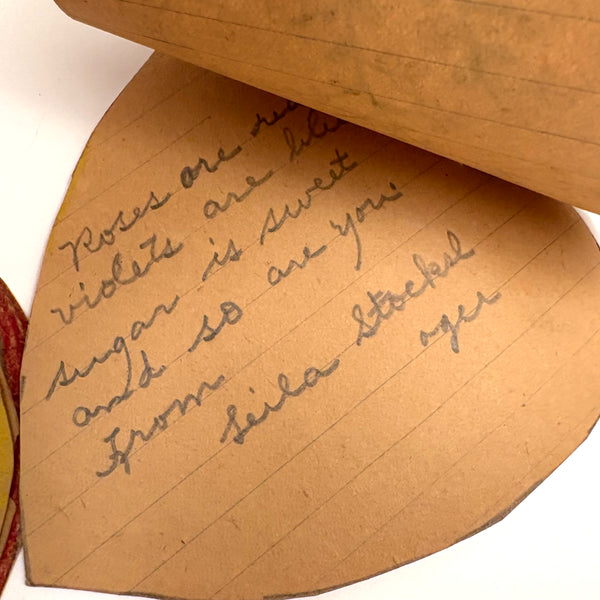 Roses are red
violets are blue
sugar is sweet
and so are you
From
Leila Stocksl
ager